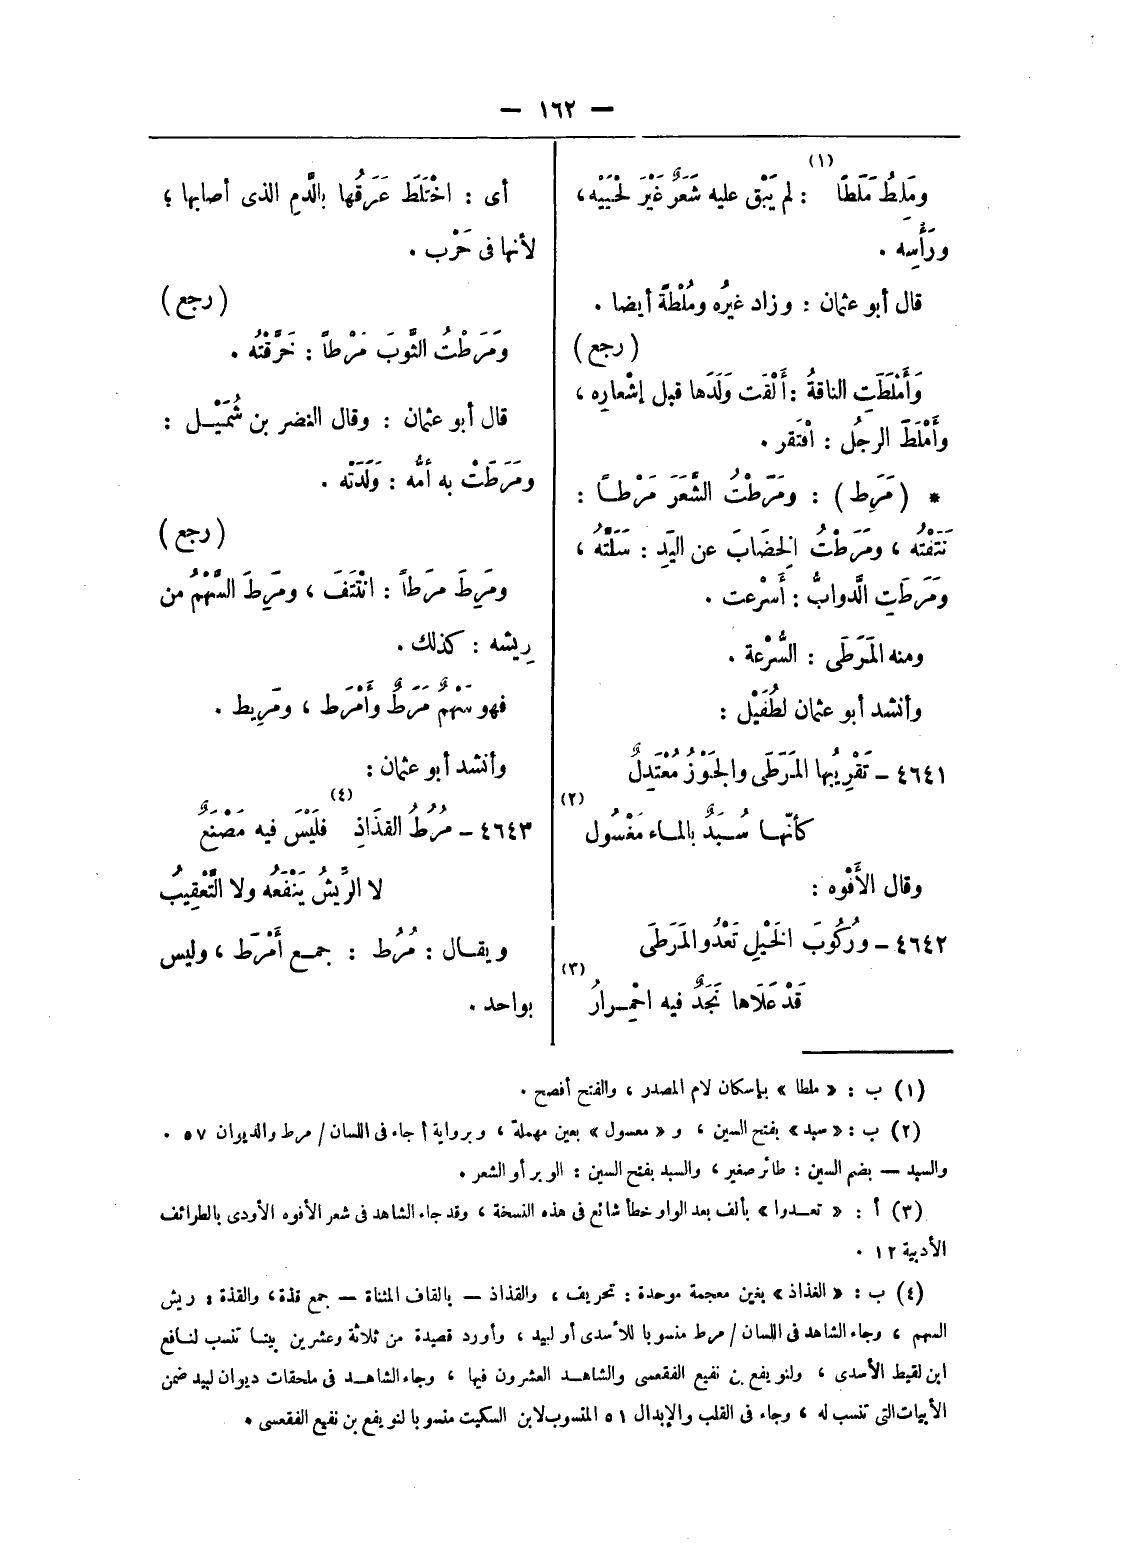 — ١٦٢ —
ومَلِطُ مَلَطًا (١) : لم يَبْق عليه شَعَرٌ غَيْرَ لحْيَيْه ،
ورَأْسِه .
قال أبو عثمان : وزاد غيرُه ومُلْطَةً أيضا .
( رجع )
وَأَمْلَطَتِ الناقةُ : أَلْقَت وَلَدَها قبل إشْعارِه ،
وأَمْلَطَ الرجلُ : افْتَقر .
* ( مَرَط ) : ومَرَطْتُ الشَّعَرَ مَرْطـًا :
نَتَفْتُه ، ومَرَطْتُ الخِضَابَ عن اليَدِ : سَلَتُّهُ ،
ومَرَطَتِ الدَّوابُّ : أَسْرعت .
ومنه المَرَطَى : السُّرْعة .
وأنشد أبو عثمان لطُفَيْل :
٤٦٤١ – تَقْرِيبُها المَرَطَى والجَوْزُ مُعْتَدِلٌ
كأنّهـا سُـبَدٌ بالمـاء مَغْسُول (٢)
وقال الأَفْوه :
٤٦٤٢ – ورُكُوبَ الخَيْلِ تَعْدُو المَرَطَى
قَدْ عَلَاها نَجَدٌ فيه احْمِـرارُ (٣)
أى : اخْتَلَطَ عَرَقُها بالدَّمِ الذى أصابها ؛
لأنها فى حَرْب .
( رجع )
ومَرَطْتُ الثَّوبَ مَرْطاً : خَرَّقْتُه .
قال أبو عثمان : وقال النضر بن شُمَيْـل :
ومَرَطَتْ به أمُّه : وَلَدَتْه .
( رجع )
ومَرِطَ مرَطاً : انْتَتَفَ ، ومَرِطَ السَّهْمُ من
رِيشه : كذلك .
فهو سَهْمٌ مَرَطٌ وأَمْرَط ، ومَرِيط .
وأنشد أبو عثمان :
٤٦٤٣ – مُرُطُ القذَاذِ (٤) فلَيْسَ فيه مَصْنَعٌ
لا الرِّيشُ يَنْفَعُه ولا التَّعْقِيبُ
ويقـال : مُرُط : جمـع أَمْرَط ، وليس
بواحد .
(١) ب : « ملطا » بإسكان لام المصدر ، والفتح أفصح .
(٢) ب : « سبد » بفتح السين ، و « معسول » بعين مهملة ، وبرواية أ جاء فى اللسان / مرط والديوان ٥٧ .
والسبد — بضم السين : طائر صغير ، والسبد بفتح السين : الوبر أو الشعر .
(٣) أ : « تعـدوا » بألف بعد الواو خطأ شائع فى هذه النسخة ، وقد جاء الشاهد فى شعر الأفوه الأودى بالطرائف
الأدبية ١٢ .
(٤) ب : « الغذاذ » بغين معجمة موحدة : تحريف ، والقذاذ — بالقاف المثناة — جمع قذة ، والقذة : ريش
السهم ، وجاء الشاهد فى اللسان / مرط منسوبا للأسدى أو لبيد ، وأورد قصيدة من ثلاثة وعشرين بيتـا تنسب لنـافع
ابن لقيط الأسدى ، ولنويفع بن نفيع الفقعسى والشاهـد العشرون فيها ، وجاء الشاهـد فى ملحقات ديوان لبيد ضمن
الأبيات التى تنسب له ، وجاء فى القلب والإبدال ٥١ المنسوب لابن السكيت منسوبا لنويفع بن نفيع الفقعسى .